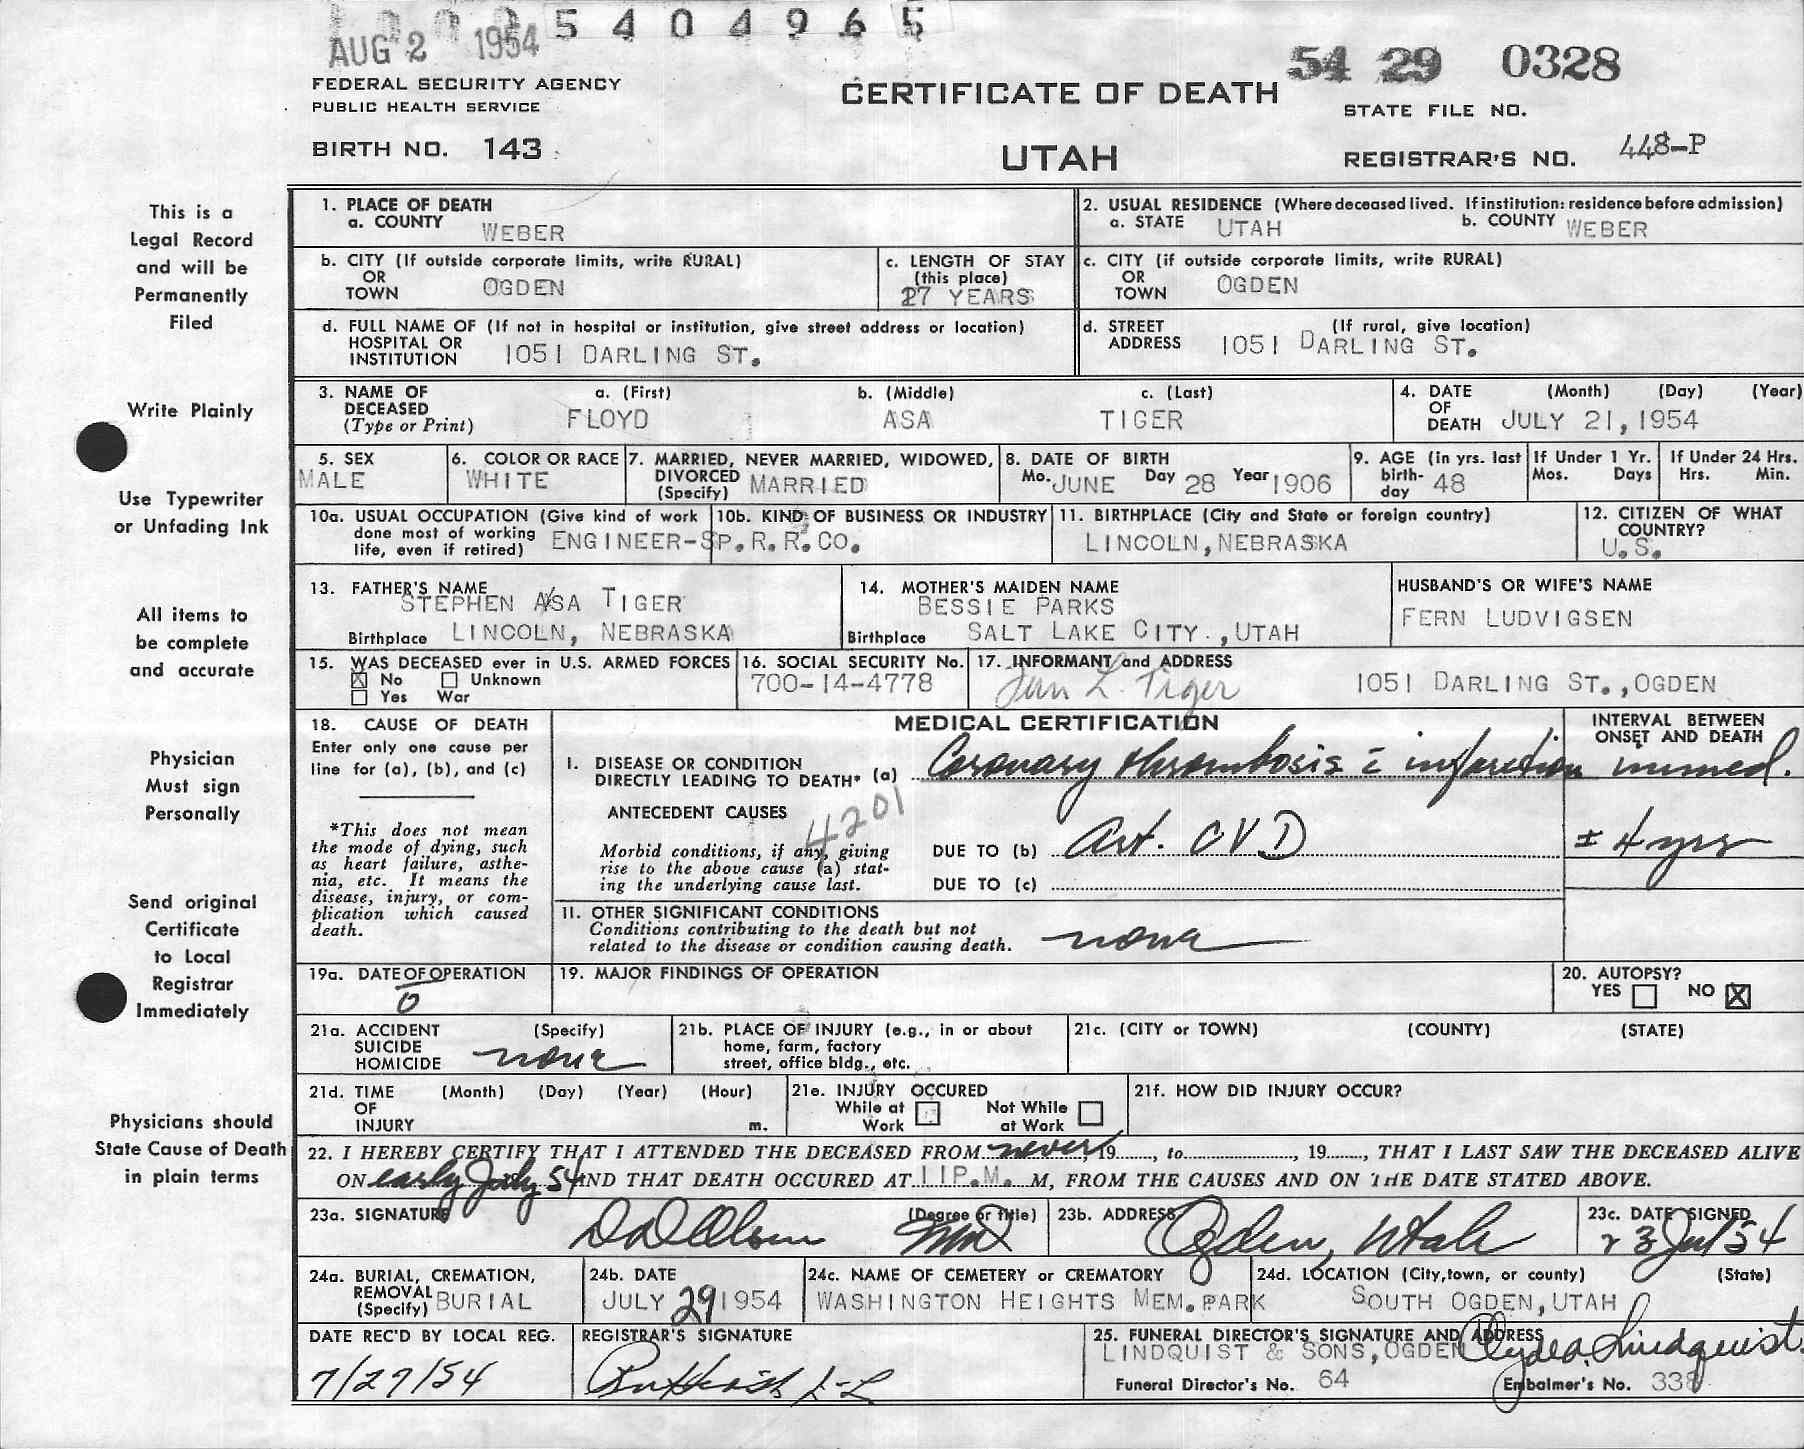 1003 5 4 0 4 9 6 5
AUG 2 1954
54 29 0328
FEDERAL SECURITY AGENCY
PUBLIC HEALTH SERVICE
CERTIFICATE OF DEATH
STATE FILE NO.
BIRTH NO. 143
UTAH
REGISTRAR'S NO. 448-P
This is a
Legal Record
and will be
Permanently
Filed
Write Plainly
Use Typewriter
or Unfading Ink
All items to
be complete
and accurate
Physician
Must sign
Personally
Send original
Certificate
to Local
Registrar
Immediately
Physicians should
State Cause of Death
in plain terms
1. PLACE OF DEATH
a. COUNTY WEBER
2. USUAL RESIDENCE (Where deceased lived. If institution: residence before admission)
a. STATE UTAH b. COUNTY WEBER
b. CITY (If outside corporate limits, write RURAL)
OR
TOWN OGDEN
c. LENGTH OF STAY
(this place)
27 YEARS
c. CITY (if outside corporate limits, write RURAL)
OR
TOWN OGDEN
d. FULL NAME OF (If not in hospital or institution, give street address or location)
HOSPITAL OR
INSTITUTION 1051 DARLING ST.
d. STREET (If rural, give location)
ADDRESS 1051 DARLING ST.
3. NAME OF
DECEASED
(Type or Print)
a. (First) b. (Middle) c. (Last)
FLOYD ASA TIGER
4. DATE (Month) (Day) (Year)
OF
DEATH JULY 21, 1954
5. SEX
MALE
6. COLOR OR RACE
WHITE
7. MARRIED, NEVER MARRIED, WIDOWED,
DIVORCED
(Specify) MARRIED
8. DATE OF BIRTH
Mo. JUNE Day 28 Year 1906
9. AGE (in yrs. last
birth-
day 48
If Under 1 Yr.
Mos. Days
If Under 24 Hrs.
Hrs. Min.
10a. USUAL OCCUPATION (Give kind of work
done most of working
life, even if retired) ENGINEER-
10b. KIND OF BUSINESS OR INDUSTRY
SP.R.R.CO.
11. BIRTHPLACE (City and State or foreign country)
LINCOLN, NEBRASKA
12. CITIZEN OF WHAT
COUNTRY?
U.S.
13. FATHER'S NAME
STEPHEN ASA TIGER
Birthplace LINCOLN, NEBRASKA
14. MOTHER'S MAIDEN NAME
BESSIE PARKS
Birthplace SALT LAKE CITY., UTAH
HUSBAND'S OR WIFE'S NAME
FERN LUDVIGSEN
15. WAS DECEASED ever in U.S. ARMED FORCES
☒ No ☐ Unknown
☐ Yes War
16. SOCIAL SECURITY No.
700-14-4778
17. INFORMANT and ADDRESS
L. Tiger 1051 DARLING ST., OGDEN
18. CAUSE OF DEATH
Enter only one cause per
line for (a), (b), and (c)
*This does not mean
the mode of dying, such
as heart failure, asthe-
nia, etc. It means the
disease, injury, or com-
plication which caused
death.
MEDICAL CERTIFICATION
INTERVAL BETWEEN
ONSET AND DEATH
I. DISEASE OR CONDITION
DIRECTLY LEADING TO DEATH* (a) Coronary thrombosis c̄ infarction immed.
ANTECEDENT CAUSES
4201
Morbid conditions, if any, giving
rise to the above cause (a) stat-
ing the underlying cause last.
DUE TO (b) Art. CVD ± 4 yrs
DUE TO (c)
II. OTHER SIGNIFICANT CONDITIONS
Conditions contributing to the death but not
related to the disease or condition causing death. none
19a. DATE OF OPERATION
0
19. MAJOR FINDINGS OF OPERATION
20. AUTOPSY?
YES ☐ NO ☒
21a. ACCIDENT (Specify)
SUICIDE
HOMICIDE none
21b. PLACE OF INJURY (e.g., in or about
home, farm, factory
street, office bldg., etc.
21c. (CITY or TOWN) (COUNTY) (STATE)
21d. TIME (Month) (Day) (Year) (Hour)
OF
INJURY m.
21e. INJURY OCCURED
While at Work ☐ Not While at Work ☐
21f. HOW DID INJURY OCCUR?
22. I HEREBY CERTIFY THAT I ATTENDED THE DECEASED FROM never, 19...., to...., 19...., THAT I LAST SAW THE DECEASED ALIVE
ON early July 54 AND THAT DEATH OCCURED AT 11P.M. M, FROM THE CAUSES AND ON THE DATE STATED ABOVE.
23a. SIGNATURE (Degree or title)
Olsen MD
23b. ADDRESS
Ogden, Utah
23c. DATE SIGNED
23 Jul 54
24a. BURIAL, CREMATION,
REMOVAL
(Specify) BURIAL
24b. DATE
JULY 29 1954
24c. NAME OF CEMETERY or CREMATORY
WASHINGTON HEIGHTS MEM. PARK
24d. LOCATION (City, town, or county) (State)
SOUTH OGDEN, UTAH
DATE REC'D BY LOCAL REG.
7/27/54
REGISTRAR'S SIGNATURE
25. FUNERAL DIRECTOR'S SIGNATURE AND ADDRESS
LINDQUIST & SONS, OGDEN Clyde A. Lindquist
Funeral Director's No. 64 Embalmer's No. 338